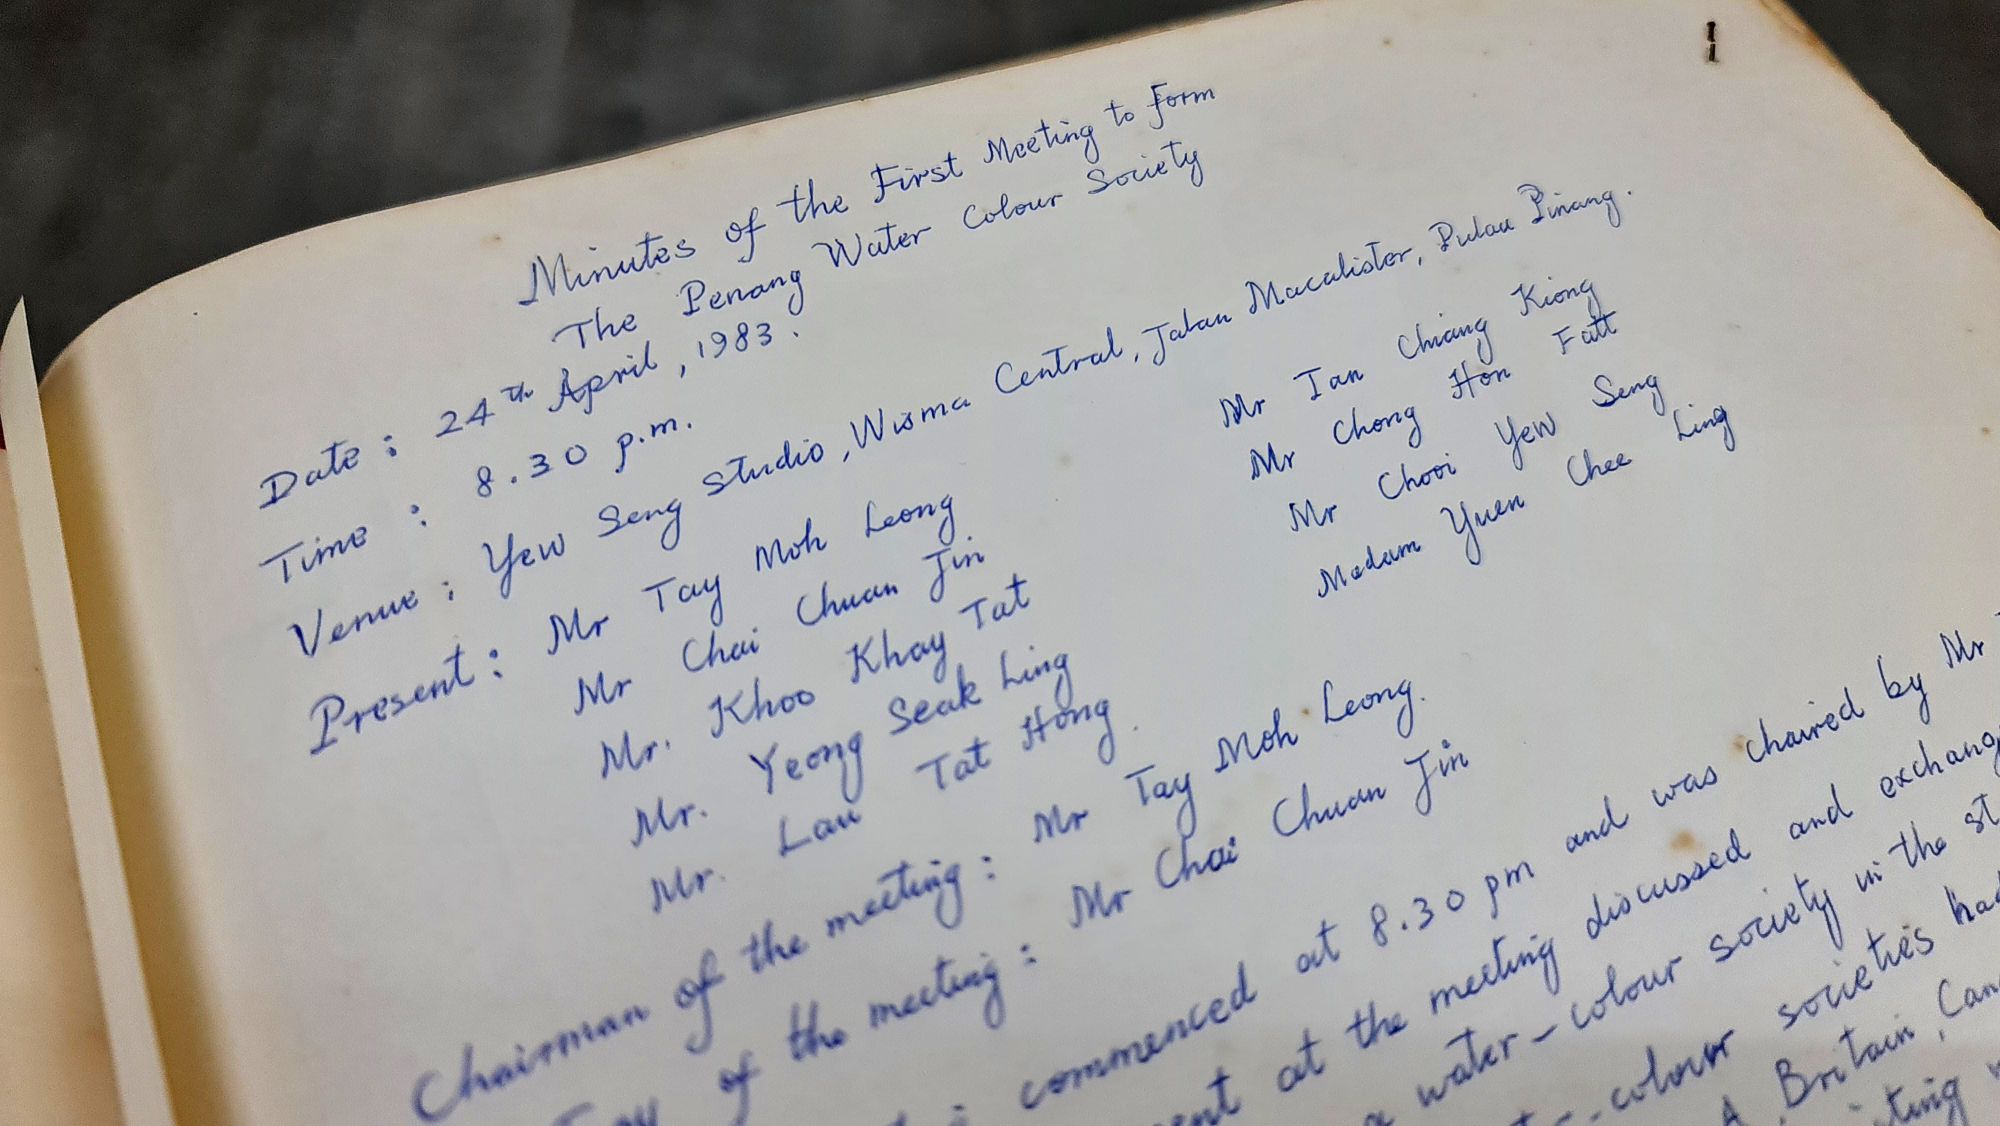 Minutes of the First Meeting to form
The Penang Water Colour Society
Date : 24th April, 1983.
Time : 8.30 p.m.
Venue : Yew Seng Studio, Wisma Central, Jalan Macalister, Pulau Pinang.
Present : Mr Tay Moh Leong Mr Tan Chiang Kiong
Mr Chai Chuan Jin Mr Chong Hon Fatt
Mr. Khoo Khay Tat Mr Chooi Yew Seng
Mr. Yeong Seak Ling Madam Yuen Chee Ling
Mr. Lau Tat Hong.
Chairman of the meeting : Mr Tay Moh Leong.
of the meeting : Mr Chai Chuan Jin
commenced at 8.30 pm and was chaired by Mr
at the meeting discussed and
a water-colour society in the
colour societies
Britain,